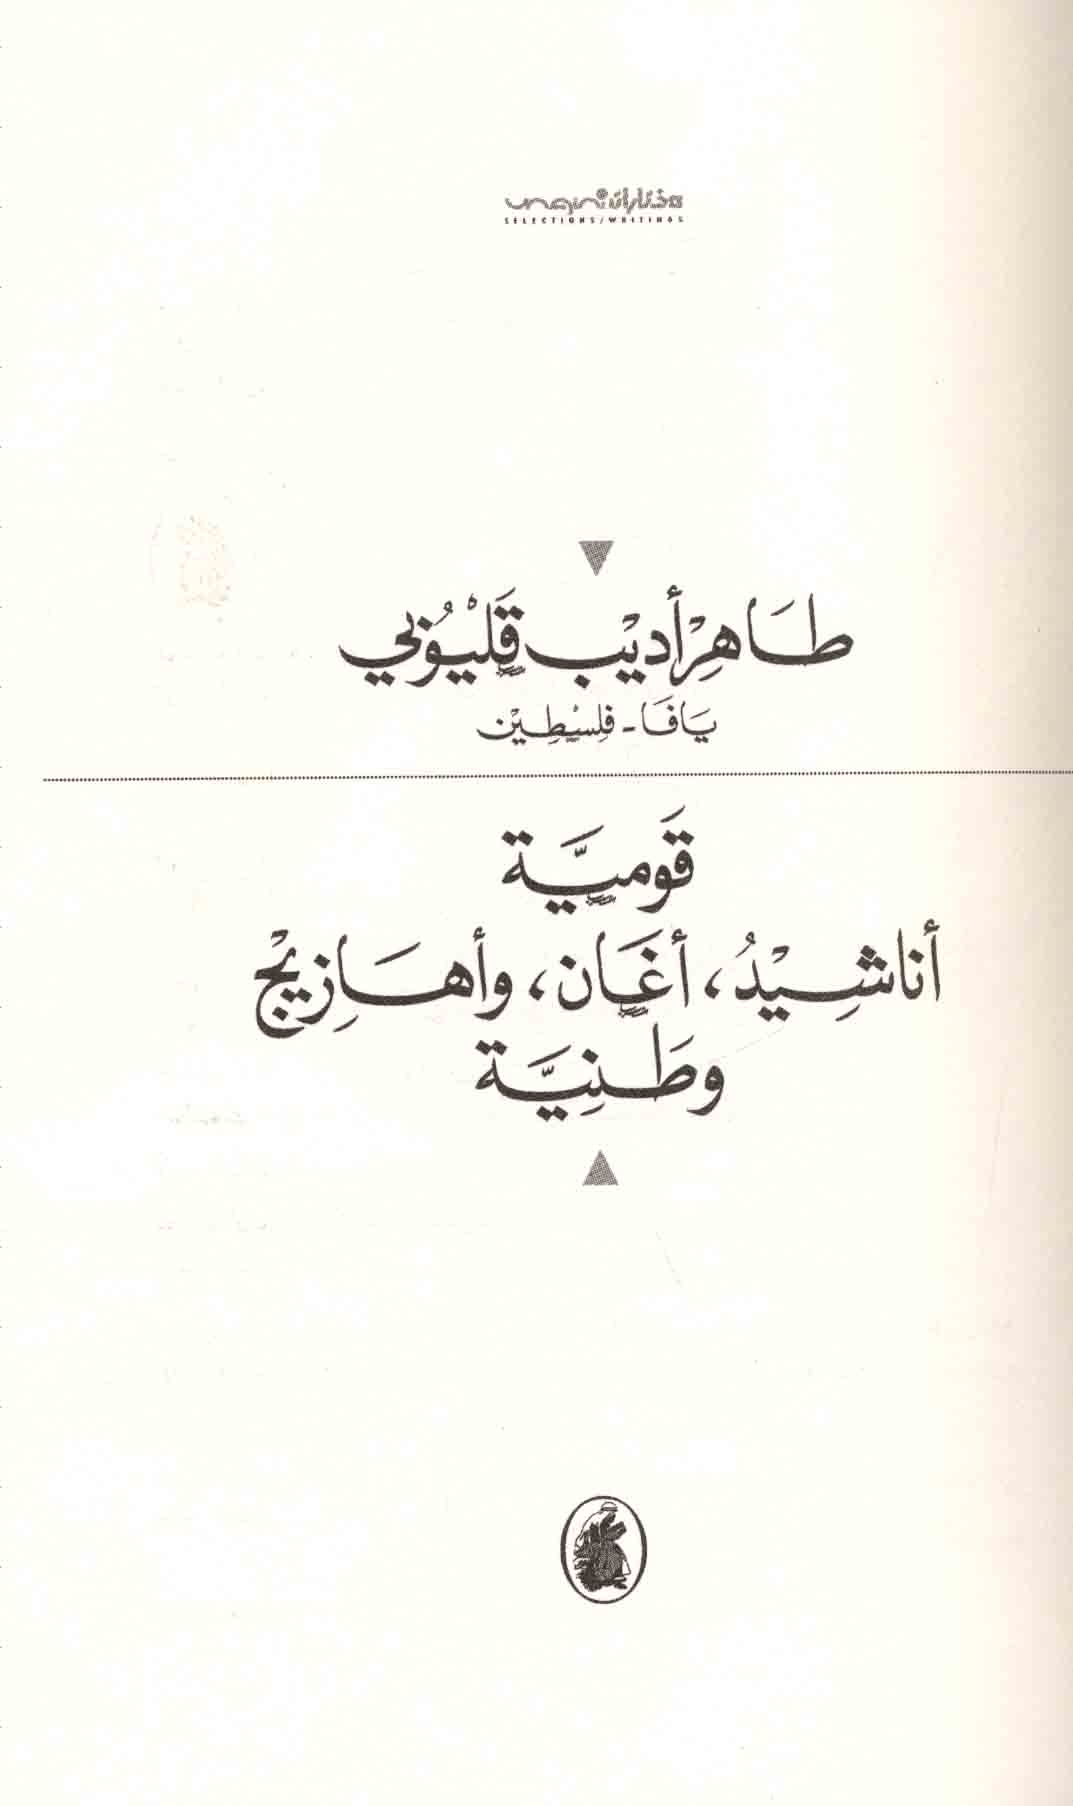 مختارات/نصوص
SELECTIONS/WRITINGS
طَاهِرْ أديْب قَليْوُبي
يَافَا - فِلِسْطِيْن
قَوميَّة
أناشِيْدُ، أغَان، وأهَازِيْج
وطَنِيَّة